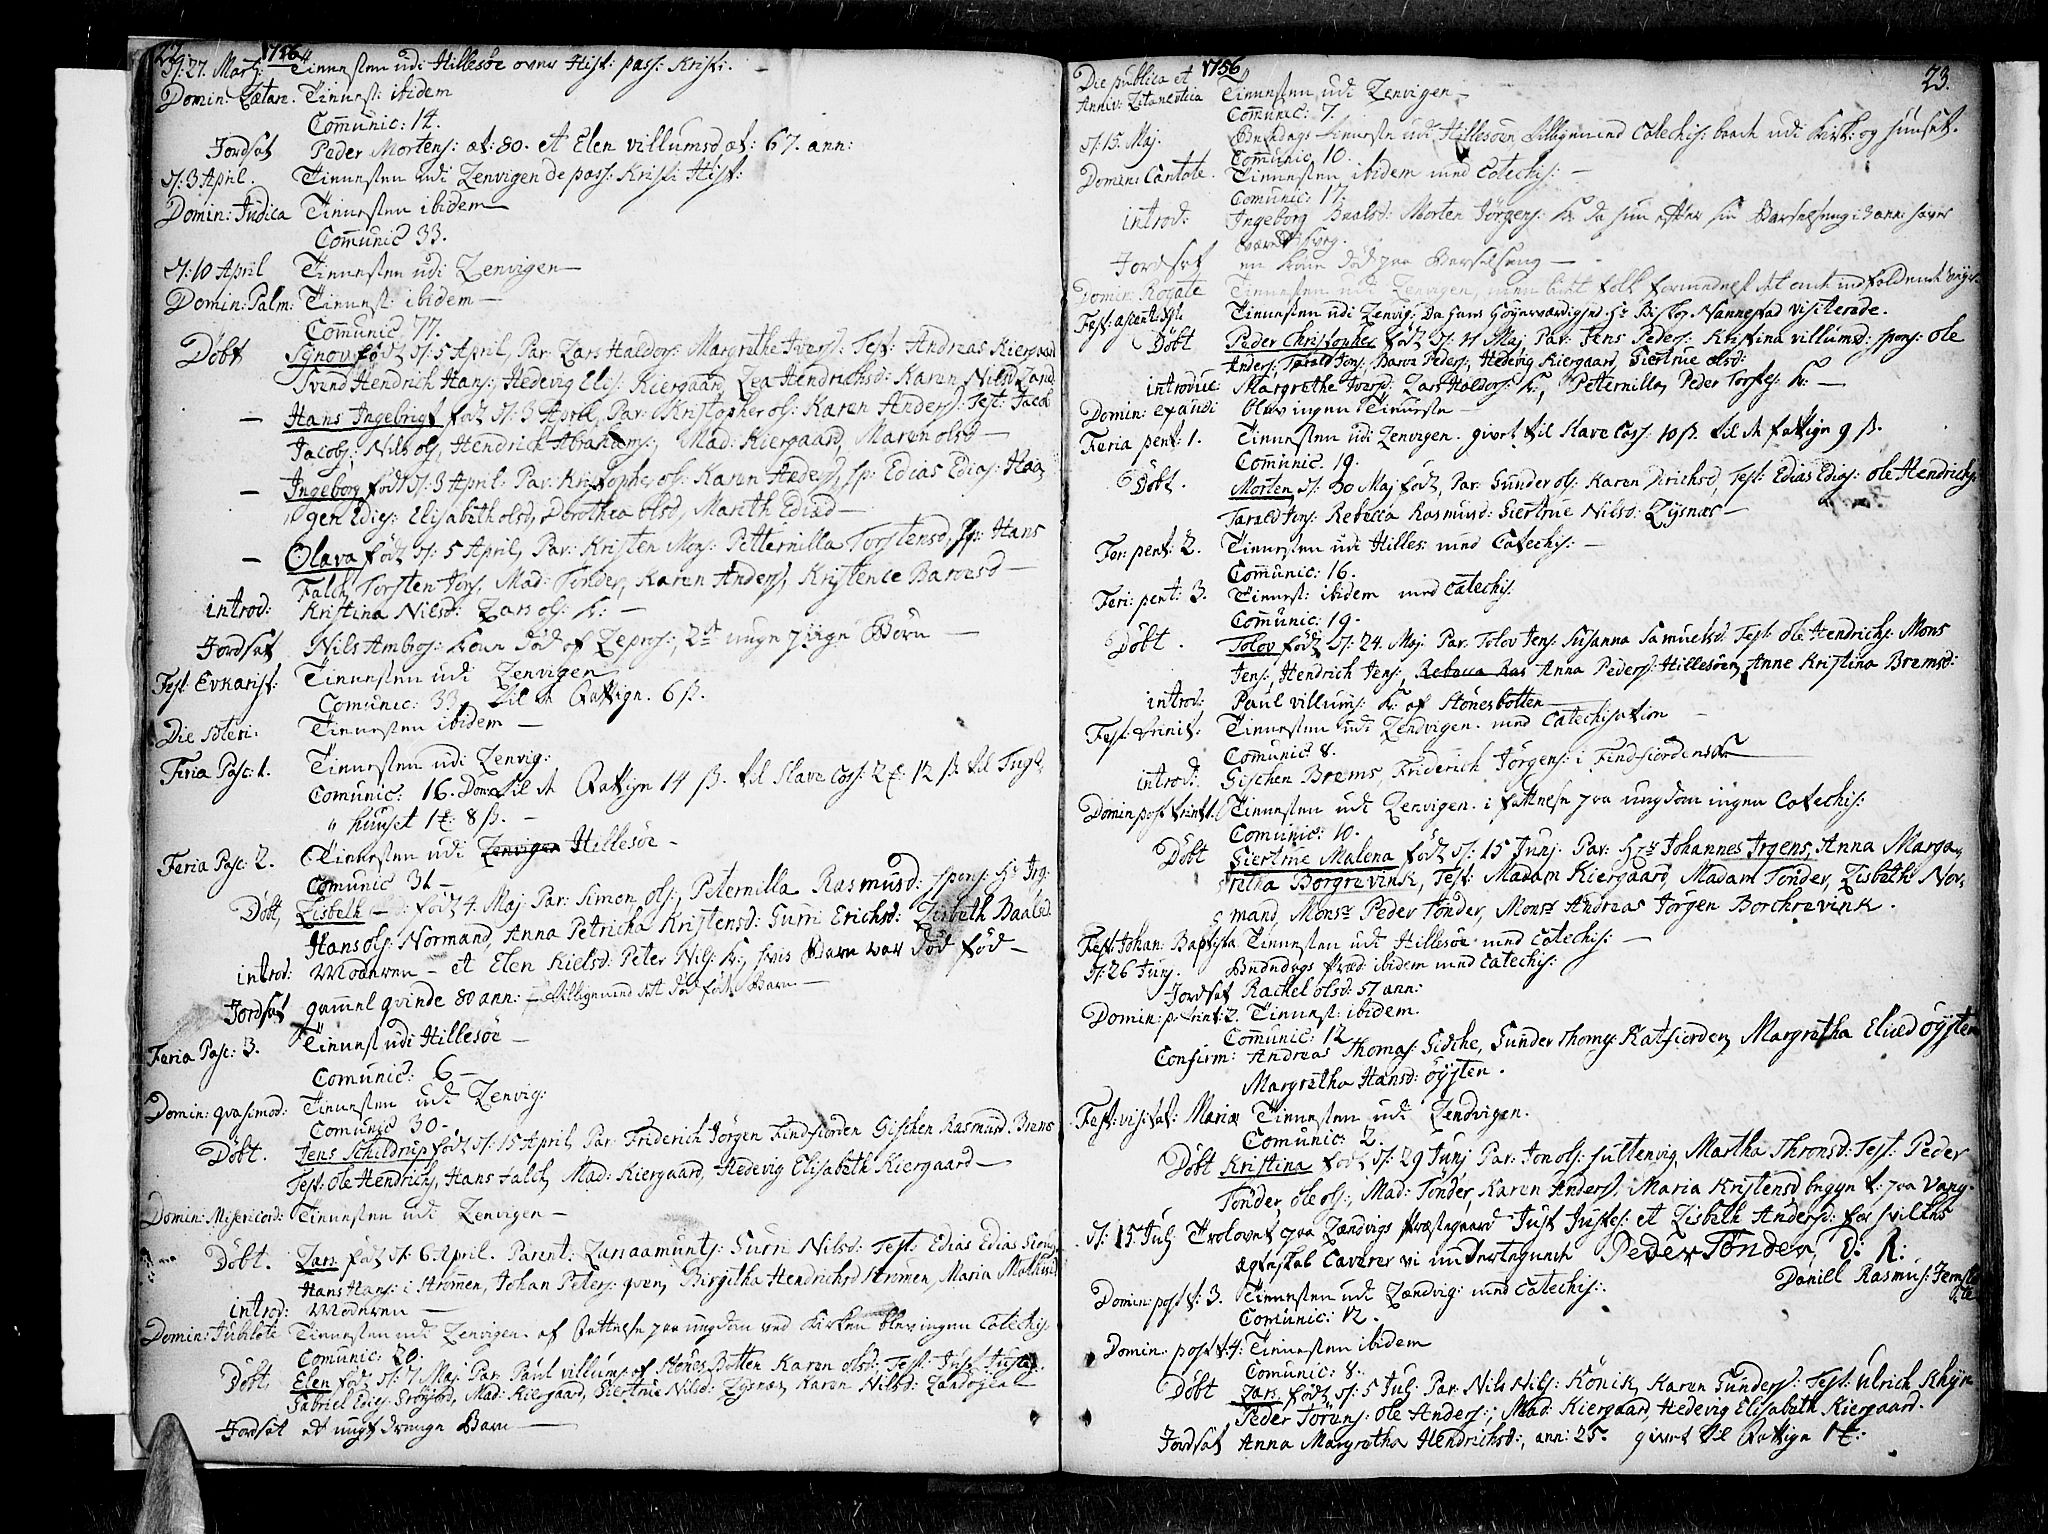 22. 1756
d: 27. Martj: Tienesten udi Hillesöe over Hist: pass: Kristi.
Domin: Lætare. Tienest: ibidem
Com̄unic: 14.
Jordsat Peder Mortens: æt: 80. et Elen Villumsd æt: 67. ann:
d: 3 April. Tienesten udi Lenvigen de pass: Kristi Hist:
Domin: Judica Tienesten ibidem
Com̄unic 33.
d: 10 April Tienesten udi Lenvigen
Domin: Palm: Tienest: ibidem
Com̄unic 77.
Döbt Synov föd d: 5 April, Par: Lars Haldors: Margrethe Ivers: Test: Andreas Kiergaard
Svend Hendrich Hans: Hedevig Elis: Kiergaard, Lea Hendrichsd: Karen Nilsd Land:
– Hans Ingebrigt föd d: 3 April, Par: Kristopher ols: Karen Andersd: Test: Jacob
Jacobs: Nils ols, Hendrich Abrahams:, Mad: Kiergaard, Maren olsd
– Ingeborg föd d: 3 April: Par: Kristopher ols: Karen Andersd, sp: Edias Edias: Haa
gen Edies: Elisabeth olsd, Dorothea olsd, Marith Ediasd
– Olava föd d: 5 April, Par: Kristen Mons: Petternilla Torstensd, sp: Hans
Falch, Torsten Jors, Mad: Tönder, Karen Andersd, Kristence Baronsd
introd: Kristina Nilsd: Lars ols: K:
Jordsat Nils Ambros: Kone död af Lepros:, 2de unge Börn
Fest: Evkarist: Tienesten udi Lenvigen
Comunic: 33. Til de Fattige. 6 ß.
Die Soteri: Tienesten ibidem
Feria Pasc: 1. Tienesten udi Lenvig:
Comunic: 16. Til de Fattige 14 ß. til Slave Cass: 2 12 ß til Tugt
huuset 1 8 ß.
Feria Pasc: 2. Tienesten udi Lenvigen Hillesöe
Comunic 31
Döbt, Lisbeth föd 4. Maj Par: Simon ols:, Peternilla Rasmusd: spons: Hr Irg:
Hans ols: Normand, Anna Petricha Kristensd: Gurri Erichsd: Lisbeth Baalsd
introd: Moderen – et Elen Kielsd: Peter Nils: K:, hvis Barn var död föd
Jordsat gammel qvinde 80 ann: Lilligemend det död föde Barn
Feria Pasc: 3. Tienest udi Hillesöe
Comunic: 6
Domin: qvasimod: Tienesten udi Lenvig:
Comunic 30
Döbt. Jens Schildrup föd d: 15 April, Par: Friderich Jörgen Findfiorden Gischen Rasmusd Brems
Test: Ole Hendrichs, Hans Falch, Mad: Kiergaard, Hedevig Elisabeth Kiergaard
Domin: Misericord: Tienesten udi Lenvigen
Döbt. Lars föd d: 6 April. Parent: Lars Aamunts: Gurri Nilsd: Test: Edias Edias
Hans Hans: i Strömen, Johan Peters: qven, Birgitha Hendrichsd Strömen, Maria
introd: Moderen
Domin: Jubilate Tienesten udi Lenvigen. af Fattelse paa ungdom ved Kirken blev ingen Catechis.
Comunic: 20.
Döbt. Elen föd d: 7 Maj Par: Paul Villums: af Stönes Botten Karen olsd: Test: Just Justes:
Gabriel Edies Grövfiord, Mad: Kiergaard, Giertrue Nilsd: Lysnæs, Karen Nilsd:
Jordsat et ungt drenge Barn
1756 23.
Die publica et
Anniv: Litaneutica Tienesten udi Lenvigen
Com̄unic: 7.
d: 15. Maj. Onsdags Tieneste udi Hillesöen Lilligemend Catechis: baade udi Kirk: og huuset.
Com̄unic 10.
Domin: Cantate. Tienesten ibidem med Catechis:
Comunic: 17.
introd: Ingeborg Baalsd: Morten Jörgens: K: da hun efter sin Barselseng i 3 ann: haver
været svag.
Jordsat en Kone död paa Barselseng
Domin: Rogate Tienesten udi Lenvigen, men lidet folk formedelst det ont indfaldende veyr.
Fest: ascent: Xsti Tienesten udi Lenvig: Da Hans Höyærværdighed Hr Biskop Nannestad visiterede.
Döbt Peder Christopher föd d: 11 Maj Par: Jens Peders: Kristina Villumsd: spons: Ole
Anders: Tarald Jens: Baroe Peders:, Hedevig Kiergaard, Giertrue olsd:
introduc Margrethe Iversd: Lars Haldors: K:, Peternilla, Peder Torstes: K:
Domin: exaudi blev ingen Tieneste
Feria pent: 1. Tienesten udi Lenvigen. givet til Slave Cass: 10 ß. til de fattige 9 ß.
Comunic. 19.
Döbt. Morten d: 30 Maj föd, Par: Gunder ols: Karen Dirichsd, Test: Edias Edias: Ole Hendrichs
Tarald Jens: Rebecca Rasmusd: Giertrue Nilsd: Lysnæs
Fer: pent: 2. Tienesten udi Hilles: med Catechis:
Com̄unic: 16.
Feri: pent: 3. Tienest: ibidem med Catechis:
Com̄unic: 19.
Döbt. Tolov föd d: 24. Maj. Par: Tolov Jens: Susanna Samuelsd: Test: Ole Hendrichs: Mons
Jens:, Hendrich Jens:, Rebecca Ras Anna Pedersd: Hillesöen, Anne Kristina Bremsd:
introd: Paul Villums: K: af Stönesbotten
Fest: trinit: Tienesten udi Lendvigen. med Catechisation
Comunic: 8.
introd: Gischen Brems, Friderich Jörgens: i Findfiordens K:
Domin post trinit 1. Tienesten udi Lenvigen. i Fattelse paa ungdom ingen Catechis:
Comunic: 10.
Döbt Giertrue Malena föd d: 15 Junj Par: Hr Johannes Irgens, Anna Marga
retha Borgrevink, Test: Madam Kiergaard, Madam Tönder, Lisbeth Nor,
mand, Monsr Peder Tönder, Monsr Andreas Jörgen Borchrevink.
Fest: Johan: Baptista Tienesten udi Hillesöe med Catechis:
d: 26 Junj. Bededags Præd: ibidem med Catechis:
Jordsat Rachel olsd: 57 ann:
Domin: p. trinit: 2. Tienest: ibidem.
Com̄unic: 12
Confirm: Andreas Thomas: Gidche, Gunder Thomes: Katfiorden, Margretha Eliæd Öysten
Margretha Hansd: Öysten.
Fest: visitat: Mariæ Tienesten udi Lendvigen.
Comunic: 2.
Döbt Kristina föd d: 29 Junj Par: Jon ols: Sultenvig, Martha Thronsd: Test: Peder
Tönder, Ole ols:, Mad: Tönder, Karen Andersd, Maria Kristensd paa Vang.
d: 15 Julj Trolovet paa Lændvigs Præstegaard Just Justes: et Lisbeth Andersd: for hvilkes
ægteskab Caverer vi undertegnede Peder Tönder, D: R:
Daniel Rasmus:
Domin: post t: 3. Tienesten udi Lændvig: med Catechis:.
Comunic: 12.
Domin: post t: 4: Tienesten ibidem
Comunic: 8.
Döbt Lars föd d: 5 Julj Par: Nils Nils: Könik, Karen Gundersd: Test: Ulrich Khyn
Peder Törens: Ole Anders:; Mad: Kiergaard, Hedevig Elisabeth Kiergaard.
Jordsat Anna Margretha Hendrichsd:, ann: 25. givet til Fattige 1